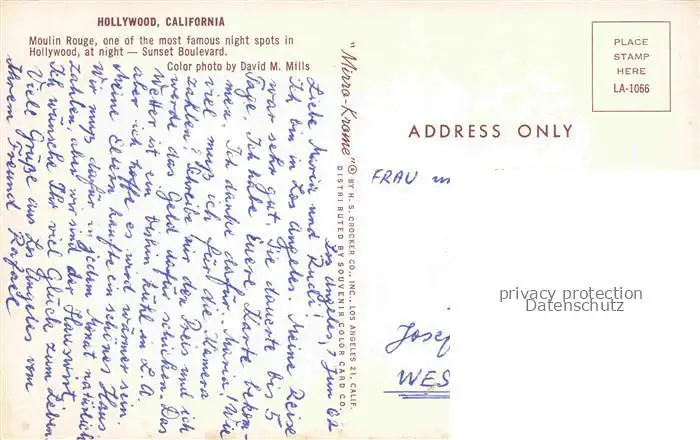 HOLLYWOOD, CALIFORNIA
Moulin Rouge, one of the most famous night spots in
Hollywood, at night — Sunset Boulevard.
Color photo by David M. Mills
"Mirro-Krome" ® BY H. S. CROCKER CO., INC., LOS ANGELES 21, CALIF.
DISTRIBUTED BY SOUVENIR COLOR CARD CO.
PLACE
STAMP
HERE
LA-1066
ADDRESS ONLY
Los Angeles, 7 Jun 62
Liebe Maria und Rudi!
Ich bin in Los Angeles. Meine Reise
war sehr gut. Sie dauerte bis 5
Tage. Ich habe Euere Karte bekom-
men. Ich danke dafür. Maria! Wie
viel muß ich für die Kamera
zahlen? Schreibe mir den Preis und ich
werde das Geld dafür schicken. Das
Wetter ist ein bishin kühl in L.A.
aber ich hoffe es wird wärmer sein.
Meine Eltern kaufte ein schönes Haus
Wir muß dafür in jedem Monat natürlich
zahlen, aber wir sind der Hauswirt.
Ich wünsche Ihr viel Glück zum Leben.
Viele Grüße aus Los Angeles vom
Ihrem Freund
FRAU
Josef
WES
privacy protection
Datenschutz